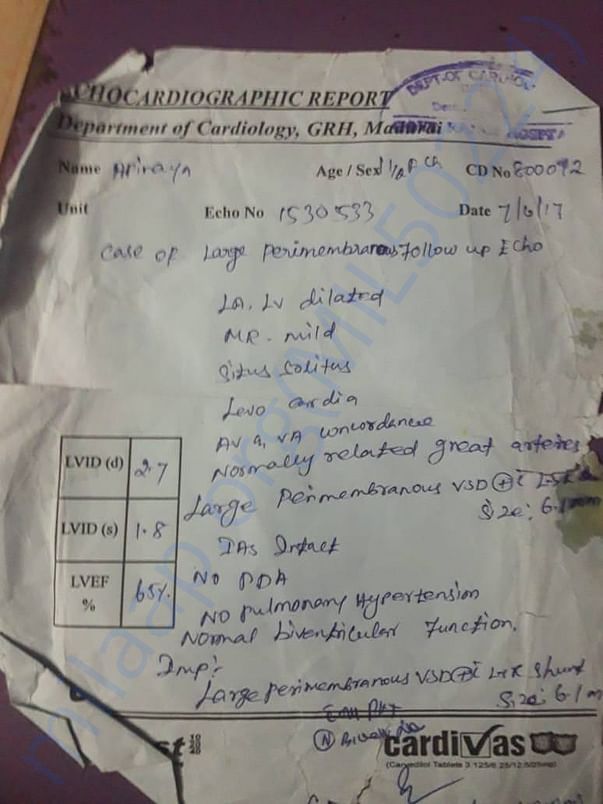 ECHOCARDIOGRAPHIC REPORT
DEPT. OF CARDIOLOGY
Department of Cardiology, GRH, Madurai
Name Ariraya Age / Sex 1 1/2 F Ch CD No 800092
Unit Echo No 1530533 Date 7/6/17
Case of Large Perimembranous Follow up Echo
LA, LV dilated
MR - mild
Situs Solitus
Levo cardia
AV & VA Concordance
Normally related great arteries
LVID (d) 2.7
Large Perimembranous VSD ⊕ c̄
Size: 6.1mm
LVID (s) 1.8
IAS Intact
LVEF % 65%
NO PDA
NO Pulmonary Hypertension
Normal biventricular Function.
Imp:-
Large Perimembranous VSD ⊕ c̄ L→R Shunt
Size: 6.1 mm
cardivas
(Carvedilol Tablets 3.125/6.25/12.5/25mg)
milaap.org(MIL50224)